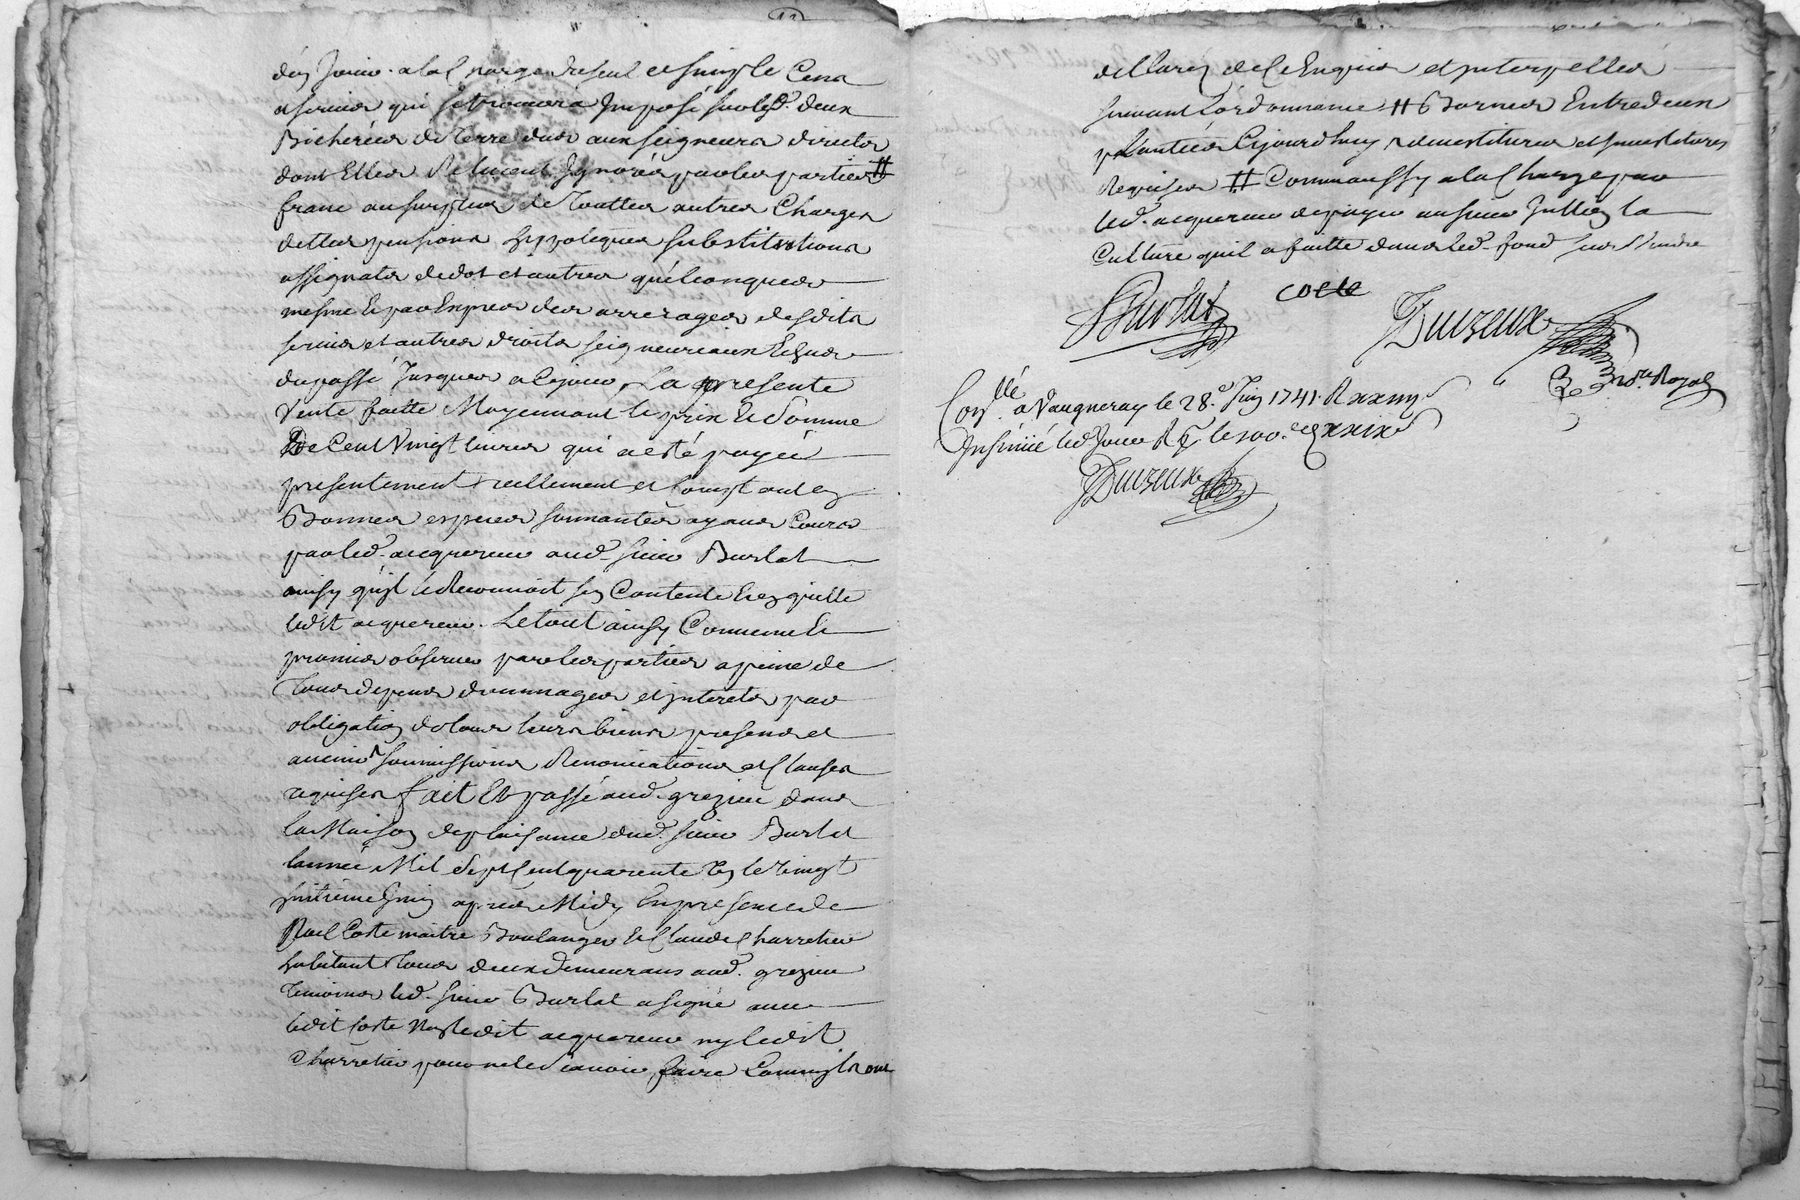 den jouir a la charge du seul et simple Cens
et servis qui se trouvera Imposé sur lesd. deux
Bicherées de Terre dus aux seigneurs directs
dont Elles Relevent Ignorés par les parties #
franc au surplus de Touttes autres Charges
dettes pensions hyppoteques substitutions
assignats de dot et autres quelconques
mesme Et par Exprés des arrerages desdits
servis et autres droits seigneuriaux Echus
du passé jusques a ce jour, La presente
Vente faitte Moyennant le prix Et somme
De Cent Vingt livres qui a esté payée
presentement reellement et Comptant en
Bonnes especes sonnantes ayans Cours
par led. acquereur aud. sieur Burlat
ainsy qu'il le Reconnoit s'en Contente Et en quitte
ledit acquereur. Le tout ainsy Convenu Et
promis observer par les parties a peine de
Tous depens dommages et interets par
obligation de tous leurs biens presens et
avenir soumissions Renonciations et Clauses
requises fait Et passé aud. grezieu dans
la Maison de plaisance dud. sieur Burlat
l'année Mil Sept Cent quarente Un le Vingt
huitieme Juin apres Midy En presence de
Coste maitre Boulanger Et Claude Charretier
habitant Tous deux demeurans aud. grezieu
Temoins led. sieur Burlat a signé avec
ledit Coste Non ledit acquereur ny ledit
Charretier pour ne le sçavoir faire Comme ils ont
declaré de ce Enquis et interpellés
suivant l'ordonnance # Bornes Entre deux
plantées Cejourdhuy devestitures et investitures
Requises # Comm'aussy a la Charge par
led. acquereur de payer au sieur Jullien la
Culture qu'il a faitte dans led. fond
Burlat coste Duizeux
Nore. Royal
Conllé. a Vaugneray le 28.e Juin 1741. R
Insinué led. Jour R
Duizeux